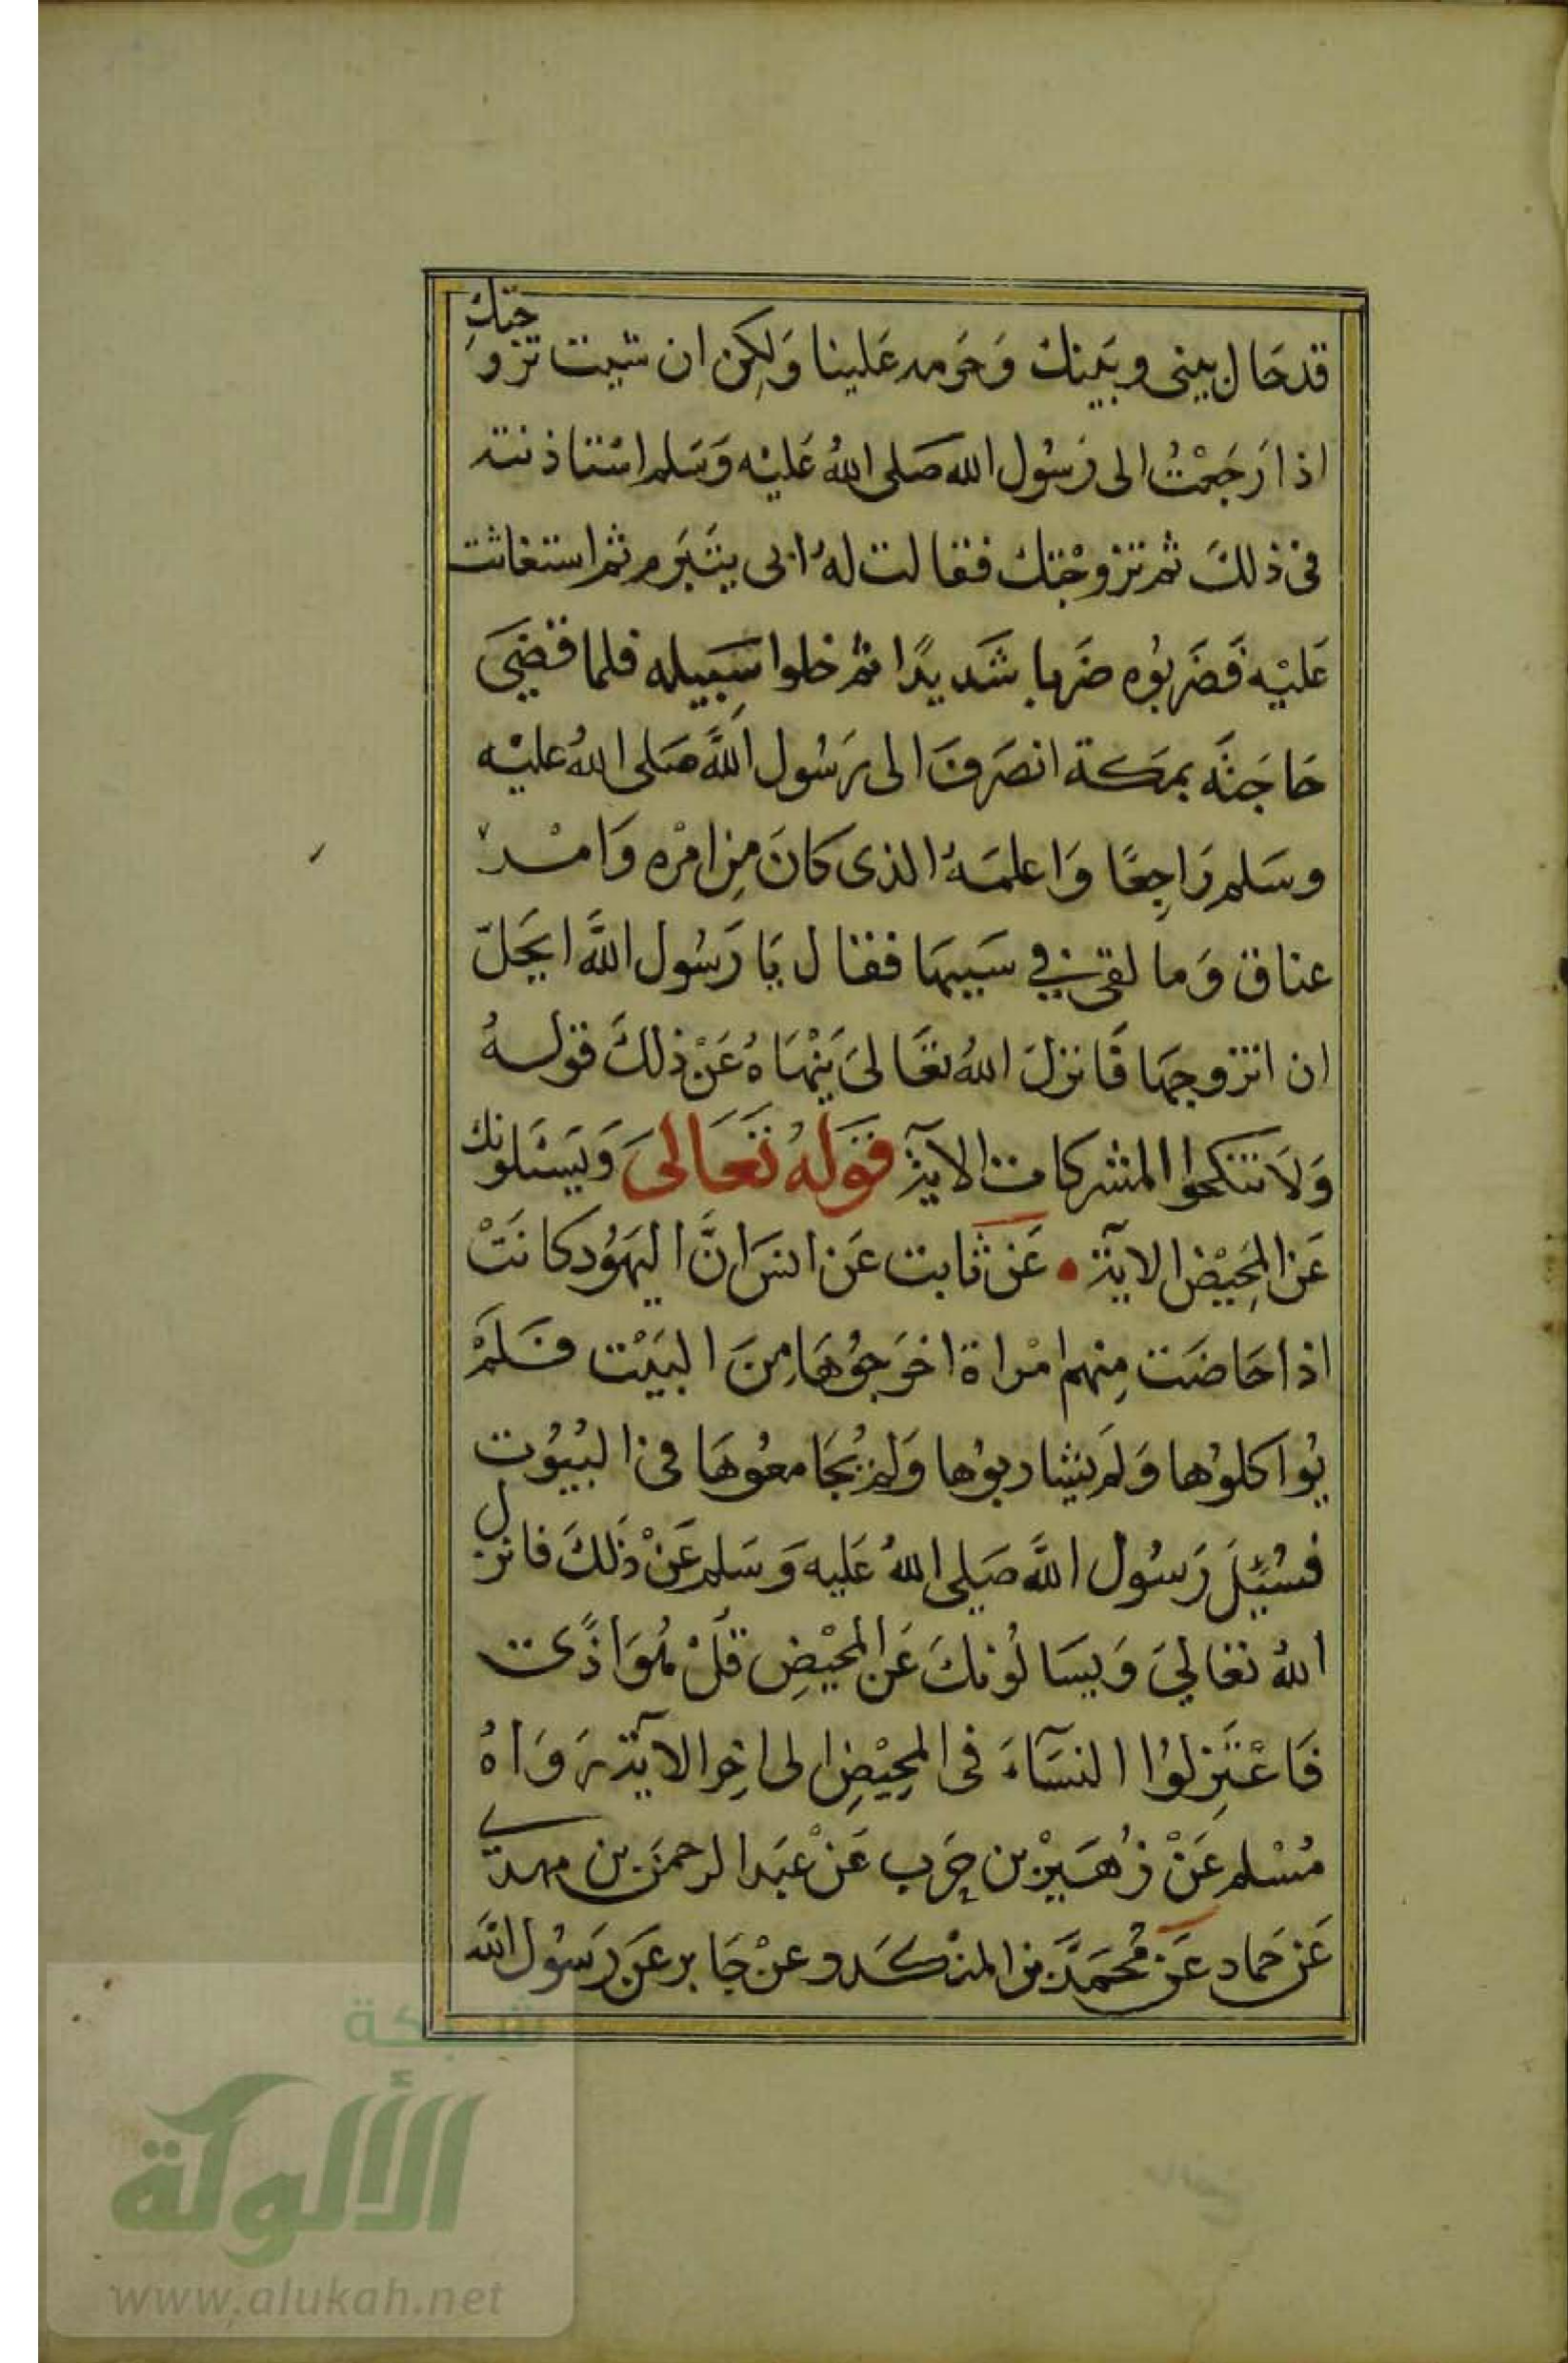 قد حَال بيني وبَينك وَحَرمه عَلينا وَلكِن ان شيت تزوجتكِ
اذا رَجَعْتُ الى رَسُول الله صَلى اللهُ عَليْه وَسَلم استاذنته
في ذلكَ ثم تزوجْتك فقالت لهُ ابى يتبَرم ثم استغاثت
عَليْه فَضَربُوه ضَربا شَديدًا ثم خلوا سَبِيله فلما قضىَ
حَاجَتَه بمكة انصَرفَ الى رَسُول اللهَّ صَلى اللهُ عليْه
وسَلم رَاجِعًا وَاعلمَهُ الذى كانَ مِن امْره وَامْر
عناق وَما لقى في سَببهَا فقال يَا رَسُول اللهَّ ايحَلّ
ان اتزوجهَا فَانزلَ اللهُ تعَالىَ يَنْهَاهُ عَنْ ذلكَ قولهُ
وَلَا تنكحوا المشركات الآية قَولهُ تَعَالىَ وَيَسْئلونك
عَن المَحِيْض الآية • عَن ثابت عَن انسَ انَّ اليهَوُد كانَتْ
اذا حَاضَت مِنهم امْراة اخرَجوُهَا مِنَ البَيْت فَلَمْ
يُواكلوُها وَلم يشاربوُها وَلم يُجَامعوُهَا في البُيوُت
فسُئِلَ رَسُول اللهَّ صَلى اللهُ عَليه وَسَلم عَنْ ذَلكَ فانزل
اللهُ تعَالىَ وَيسَالوُنكَ عَن المَحيْضِ قلْ هُوَ اذًى
فَاعْتَزِلوُا النسَآءَ في المحِيْضِ الى اخِر الآية رَوَاهُ
مُسْلم عَنْ زُهَيْر بن حَرب عَنْ عَبَد الرحمَن بن مهدي
عَن حَماد عَن مُحمَدَّ بن المنْكَدر وعنْ جَابر عَن رَسُول الله
شبكة
الألوكة
www.alukah.net